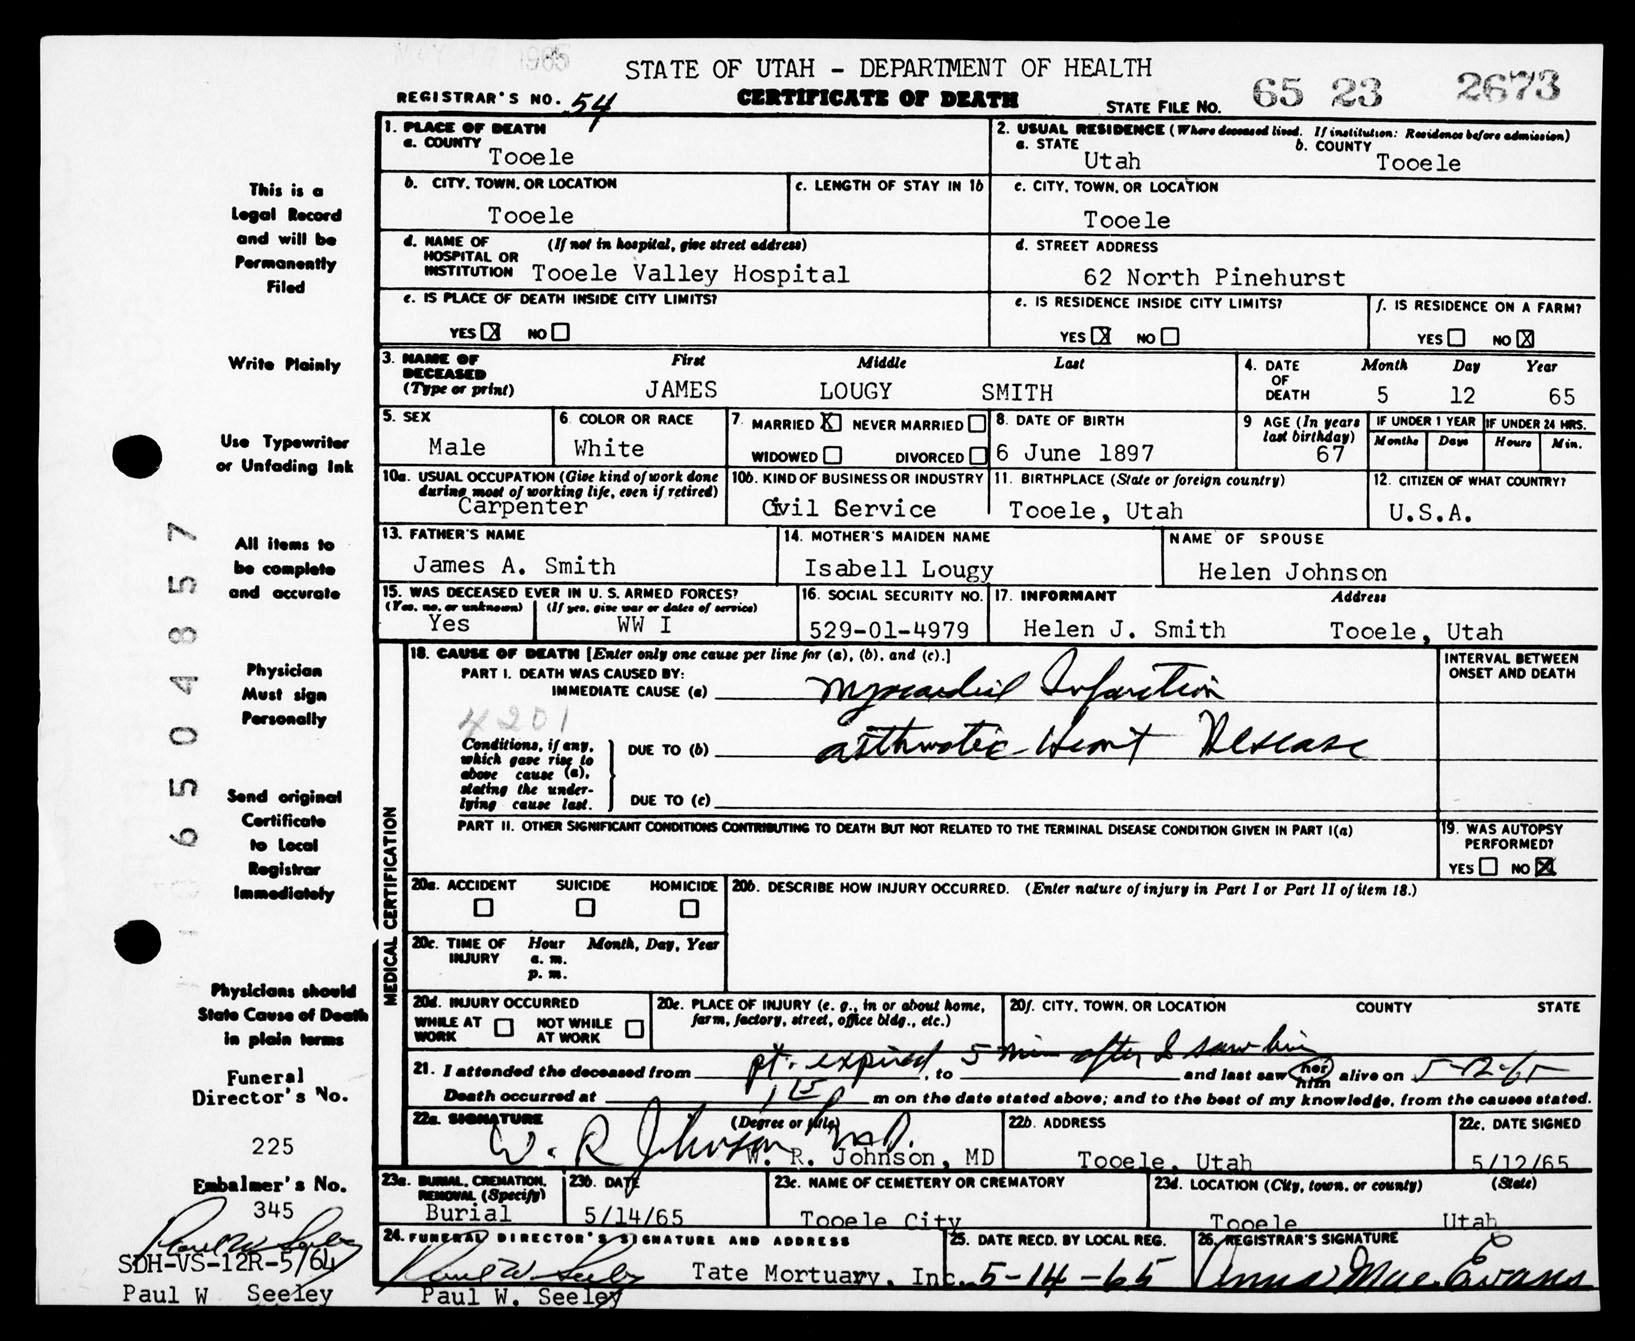 1965
STATE OF UTAH - DEPARTMENT OF HEALTH
REGISTRAR'S NO. 54
CERTIFICATE OF DEATH
STATE FILE NO. 65 23 2673
1. PLACE OF DEATH
a. COUNTY
Tooele
2. USUAL RESIDENCE (Where deceased lived. If institution: Residence before admission)
a. STATE b. COUNTY
Utah Tooele
b. CITY, TOWN, OR LOCATION c. LENGTH OF STAY IN 1b
Tooele
c. CITY, TOWN, OR LOCATION
Tooele
d. NAME OF (If not in hospital, give street address)
HOSPITAL OR
INSTITUTION Tooele Valley Hospital
d. STREET ADDRESS
62 North Pinehurst
e. IS PLACE OF DEATH INSIDE CITY LIMITS?
YES X NO
e. IS RESIDENCE INSIDE CITY LIMITS?
YES X NO
f. IS RESIDENCE ON A FARM?
YES NO X
3. NAME OF First Middle Last
DECEASED
(Type or print) JAMES LOUGY SMITH
4. DATE Month Day Year
OF
DEATH 5 12 65
5. SEX
Male
6. COLOR OR RACE
White
7. MARRIED X NEVER MARRIED
WIDOWED DIVORCED
8. DATE OF BIRTH
6 June 1897
9 AGE (In years
last birthday)
67
IF UNDER 1 YEAR IF UNDER 24 HRS.
Months Days Hours Min.
10a. USUAL OCCUPATION (Give kind of work done
during most of working life, even if retired)
Carpenter
10b. KIND OF BUSINESS OR INDUSTRY
Civil Service
11. BIRTHPLACE (State or foreign country)
Tooele, Utah
12. CITIZEN OF WHAT COUNTRY?
U.S.A.
13. FATHER'S NAME
James A. Smith
14. MOTHER'S MAIDEN NAME
Isabell Lougy
NAME OF SPOUSE
Helen Johnson
15. WAS DECEASED EVER IN U. S. ARMED FORCES?
(Yes, no, or unknown) (If yes, give war or dates of service)
Yes WW I
16. SOCIAL SECURITY NO.
529-01-4979
17. INFORMANT Address
Helen J. Smith Tooele, Utah
MEDICAL CERTIFICATION
18. CAUSE OF DEATH [Enter only one cause per line for (a), (b), and (c).]
INTERVAL BETWEEN
ONSET AND DEATH
PART I. DEATH WAS CAUSED BY:
IMMEDIATE CAUSE (a) Myocardial Infarction
4201
Conditions, if any,
which gave rise to
above cause (a),
stating the under-
lying cause last.
DUE TO (b) Heart Disease
DUE TO (c)
PART II. OTHER SIGNIFICANT CONDITIONS CONTRIBUTING TO DEATH BUT NOT RELATED TO THE TERMINAL DISEASE CONDITION GIVEN IN PART I(a)
19. WAS AUTOPSY
PERFORMED?
YES NO X
20a. ACCIDENT SUICIDE HOMICIDE
20b. DESCRIBE HOW INJURY OCCURRED. (Enter nature of injury in Part I or Part II of item 18.)
20c. TIME OF Hour Month, Day, Year
INJURY a. m.
p. m.
20d. INJURY OCCURRED
WHILE AT NOT WHILE
WORK AT WORK
20e. PLACE OF INJURY (e. g., in or about home,
farm, factory, street, office bldg., etc.)
20f. CITY, TOWN, OR LOCATION COUNTY STATE
pt. expired 5 min after I saw him
21. I attended the deceased from , to and last saw her him alive on 5-12-65
Death occurred at 1 15 P m on the date stated above; and to the best of my knowledge, from the causes stated.
22a. SIGNATURE (Degree or title)
W. R. Johnson M.D.
W. R. Johnson, MD
22b. ADDRESS
Tooele, Utah
22c. DATE SIGNED
5/12/65
23a. BURIAL, CREMATION,
REMOVAL (Specify)
Burial
23b. DATE
5/14/65
23c. NAME OF CEMETERY OR CREMATORY
Tooele City
23d. LOCATION (City, town, or county) (State)
Tooele Utah
24. FUNERAL DIRECTOR'S SIGNATURE AND ADDRESS
Paul W Seeley Tate Mortuary, Inc.
Paul W. Seeley
25. DATE RECD. BY LOCAL REG.
5-14-65
26. REGISTRAR'S SIGNATURE
Anna Mae Evans
This is a
Legal Record
and will be
Permanently
Filed
Write Plainly
Use Typewriter
or Unfading Ink
All items to
be complete
and accurate
Physician
Must sign
Personally
Send original
Certificate
to Local
Registrar
Immediately
Physicians should
State Cause of Death
in plain terms
Funeral
Director's No.
225
Embalmer's No.
345
Paul W Seeley
SDH-VS-12R-5/64
Paul W Seeley
6504857